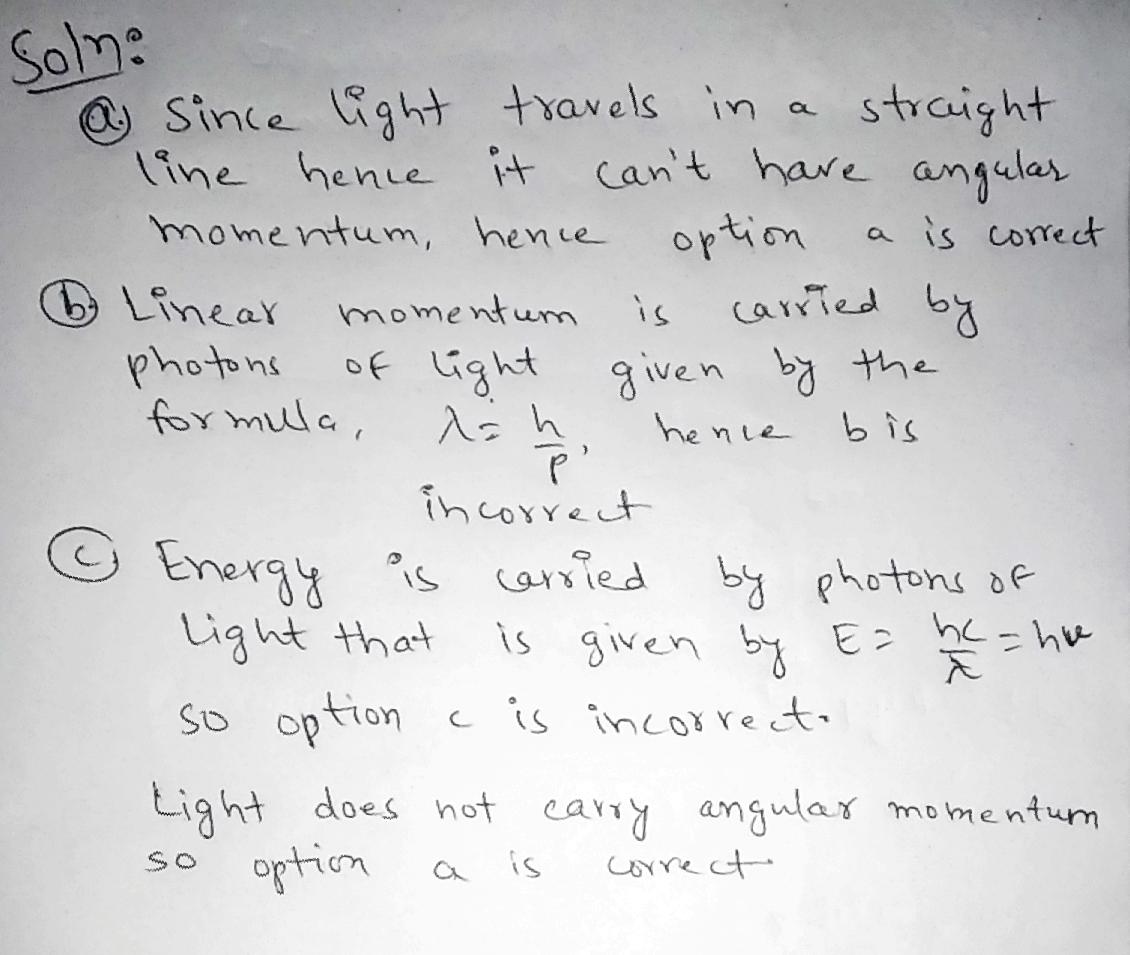 Soln:
(a) Since light travels in a straight
line hence it can't have angular
momentum, hence option a is correct
(b) Linear momentum is carried by
photons of light given by the
formula, λ = h/p, hence b is
incorrect
(c) Energy is carried by photons of
light that is given by E = hc/λ = hν
so option c is incorrect.
Light does not carry angular momentum
so option a is correct.